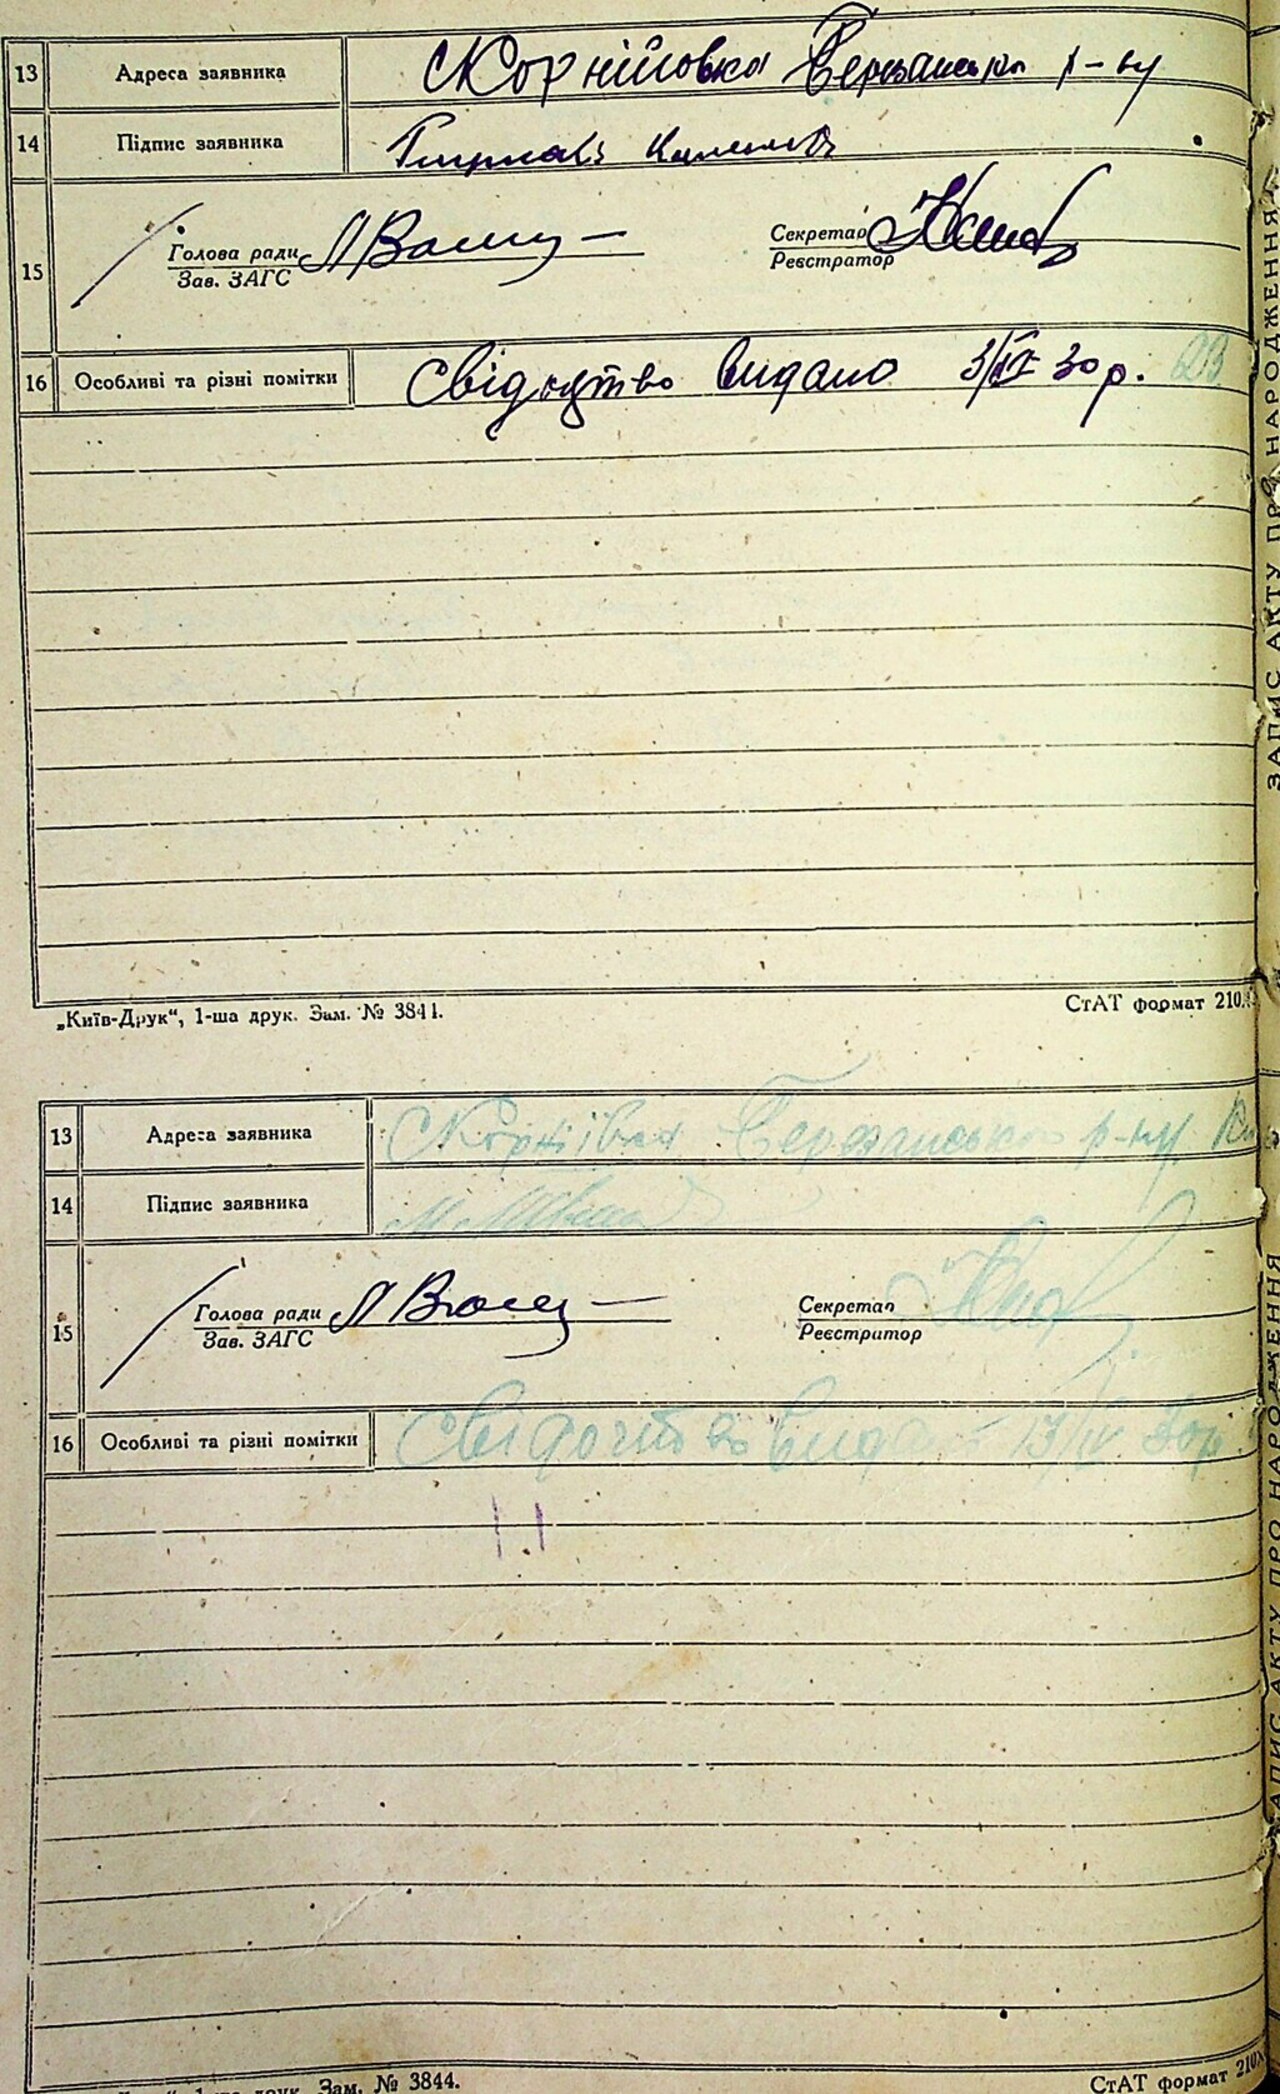 13 Адреса заявника с Корнійовка Березанського р-ну
14 Підпис заявника
15 Голова ради Секретар
Зав. ЗАГС Реєстратор
16 Особливі та різні помітки Свідоцтво видано 3/IV 30 р. 23
„Київ-Друк“, 1-ша друк. Зам. № 3844.
СтАТ формат 210
13 Адреса заявника с Корніївка Березанського р-ну
14 Підпис заявника
15 Голова ради Секретар
Зав. ЗАГС Реєстратор
16 Особливі та різні помітки Свідоцтво видано 17/IV 30 р.
1-ша друк. Зам. № 3844.
СтАТ формат 210×
ЗАПИС АКТУ ПРО НАРОДЖЕННЯ
ЗАПИС АКТУ ПРО НАРОДЖЕННЯ